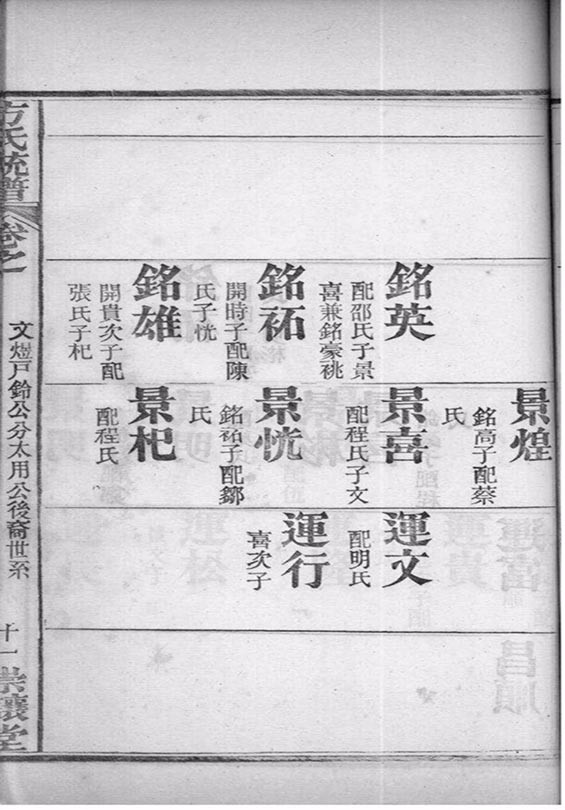 景煌
銘高子配蔡
氏
銘英
配邵氏子景
喜兼銘豪祧
景喜
配程氏子文
運文
配明氏
銘祏
開時子配陳
氏子恍
景恍
銘祏子配鄒
氏
運行
喜次子
銘雄
開貴次子配
張氏子杞
景杞
配程氏
方氏統譜
卷之
文煜戶鈴公分太用公後裔世系
十一
崇讓堂